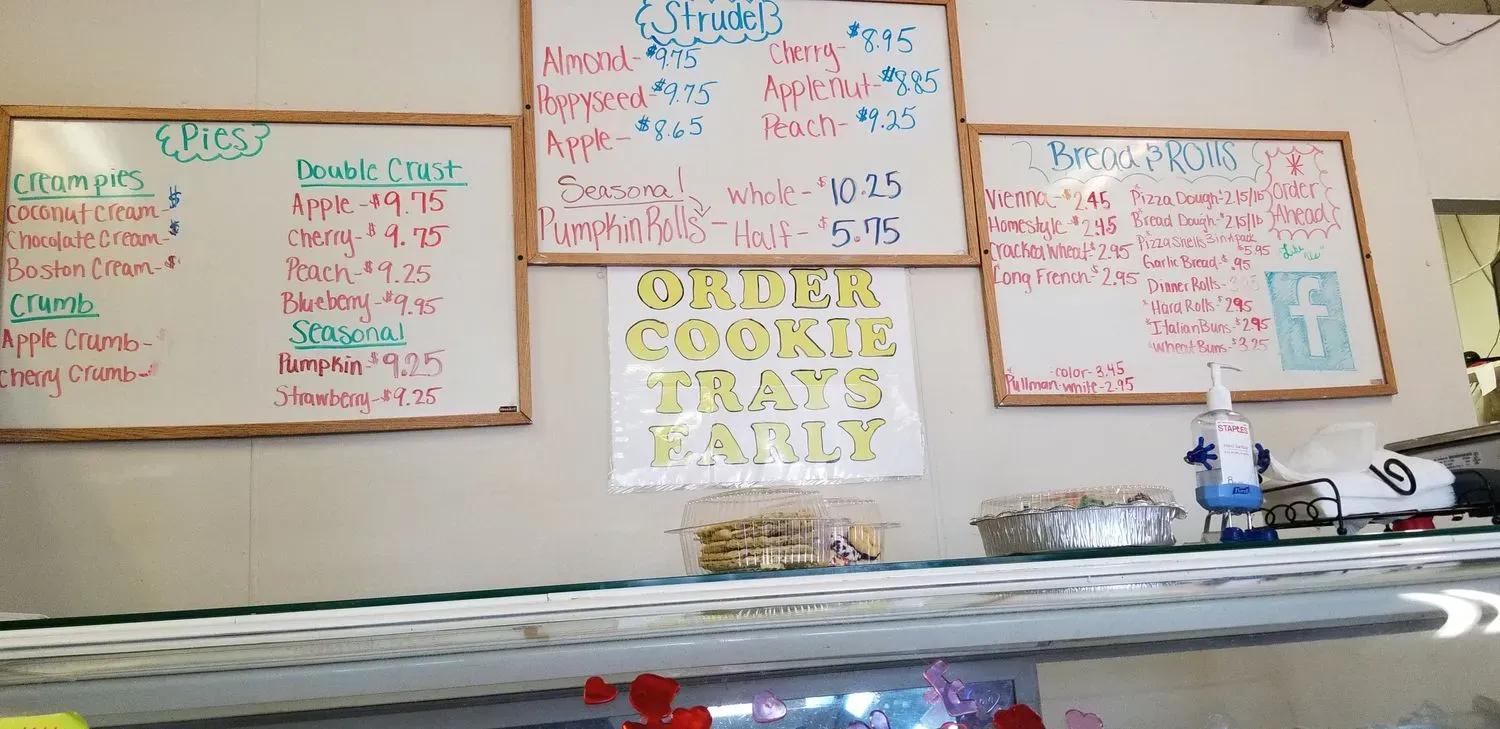 {Pies}
Cream pies
Coconut Cream-$
Chocolate Cream-$
Boston Cream-$
Crumb
Apple Crumb-
Cherry Crumb-
Double Crust
Apple-$9.75
Cherry-$9.75
Peach-$9.25
Blueberry-$9.95
Seasonal
Pumpkin-$9.25
Strawberry-$9.25
{Strudel}
Almond-$9.75
Poppyseed-$9.75
Apple-$8.65
Cherry-$8.95
Applenut-$8.85
Peach-$9.25
Seasonal
Pumpkin Rolls-
whole-$10.25
Half-$5.75
ORDER
COOKIE
TRAYS
EARLY
Bread & ROLLS
Vienna-$2.45
Homestyle-$2.45
Cracked Wheat-$2.95
Long French-$2.95
*Pizza Dough-$2.15/lb
*Bread Dough-$2.15/lb
*Pizza Shells 3 in a pack
$5.95
Garlic Bread-$.95
Dinner Rolls-
*Hard Rolls-$2.95
*Italian Buns-$2.95
*Wheat Buns-$3.25
Pullman
-color-3.45
-white-2.95
* Order
Ahead
f
STAPLES